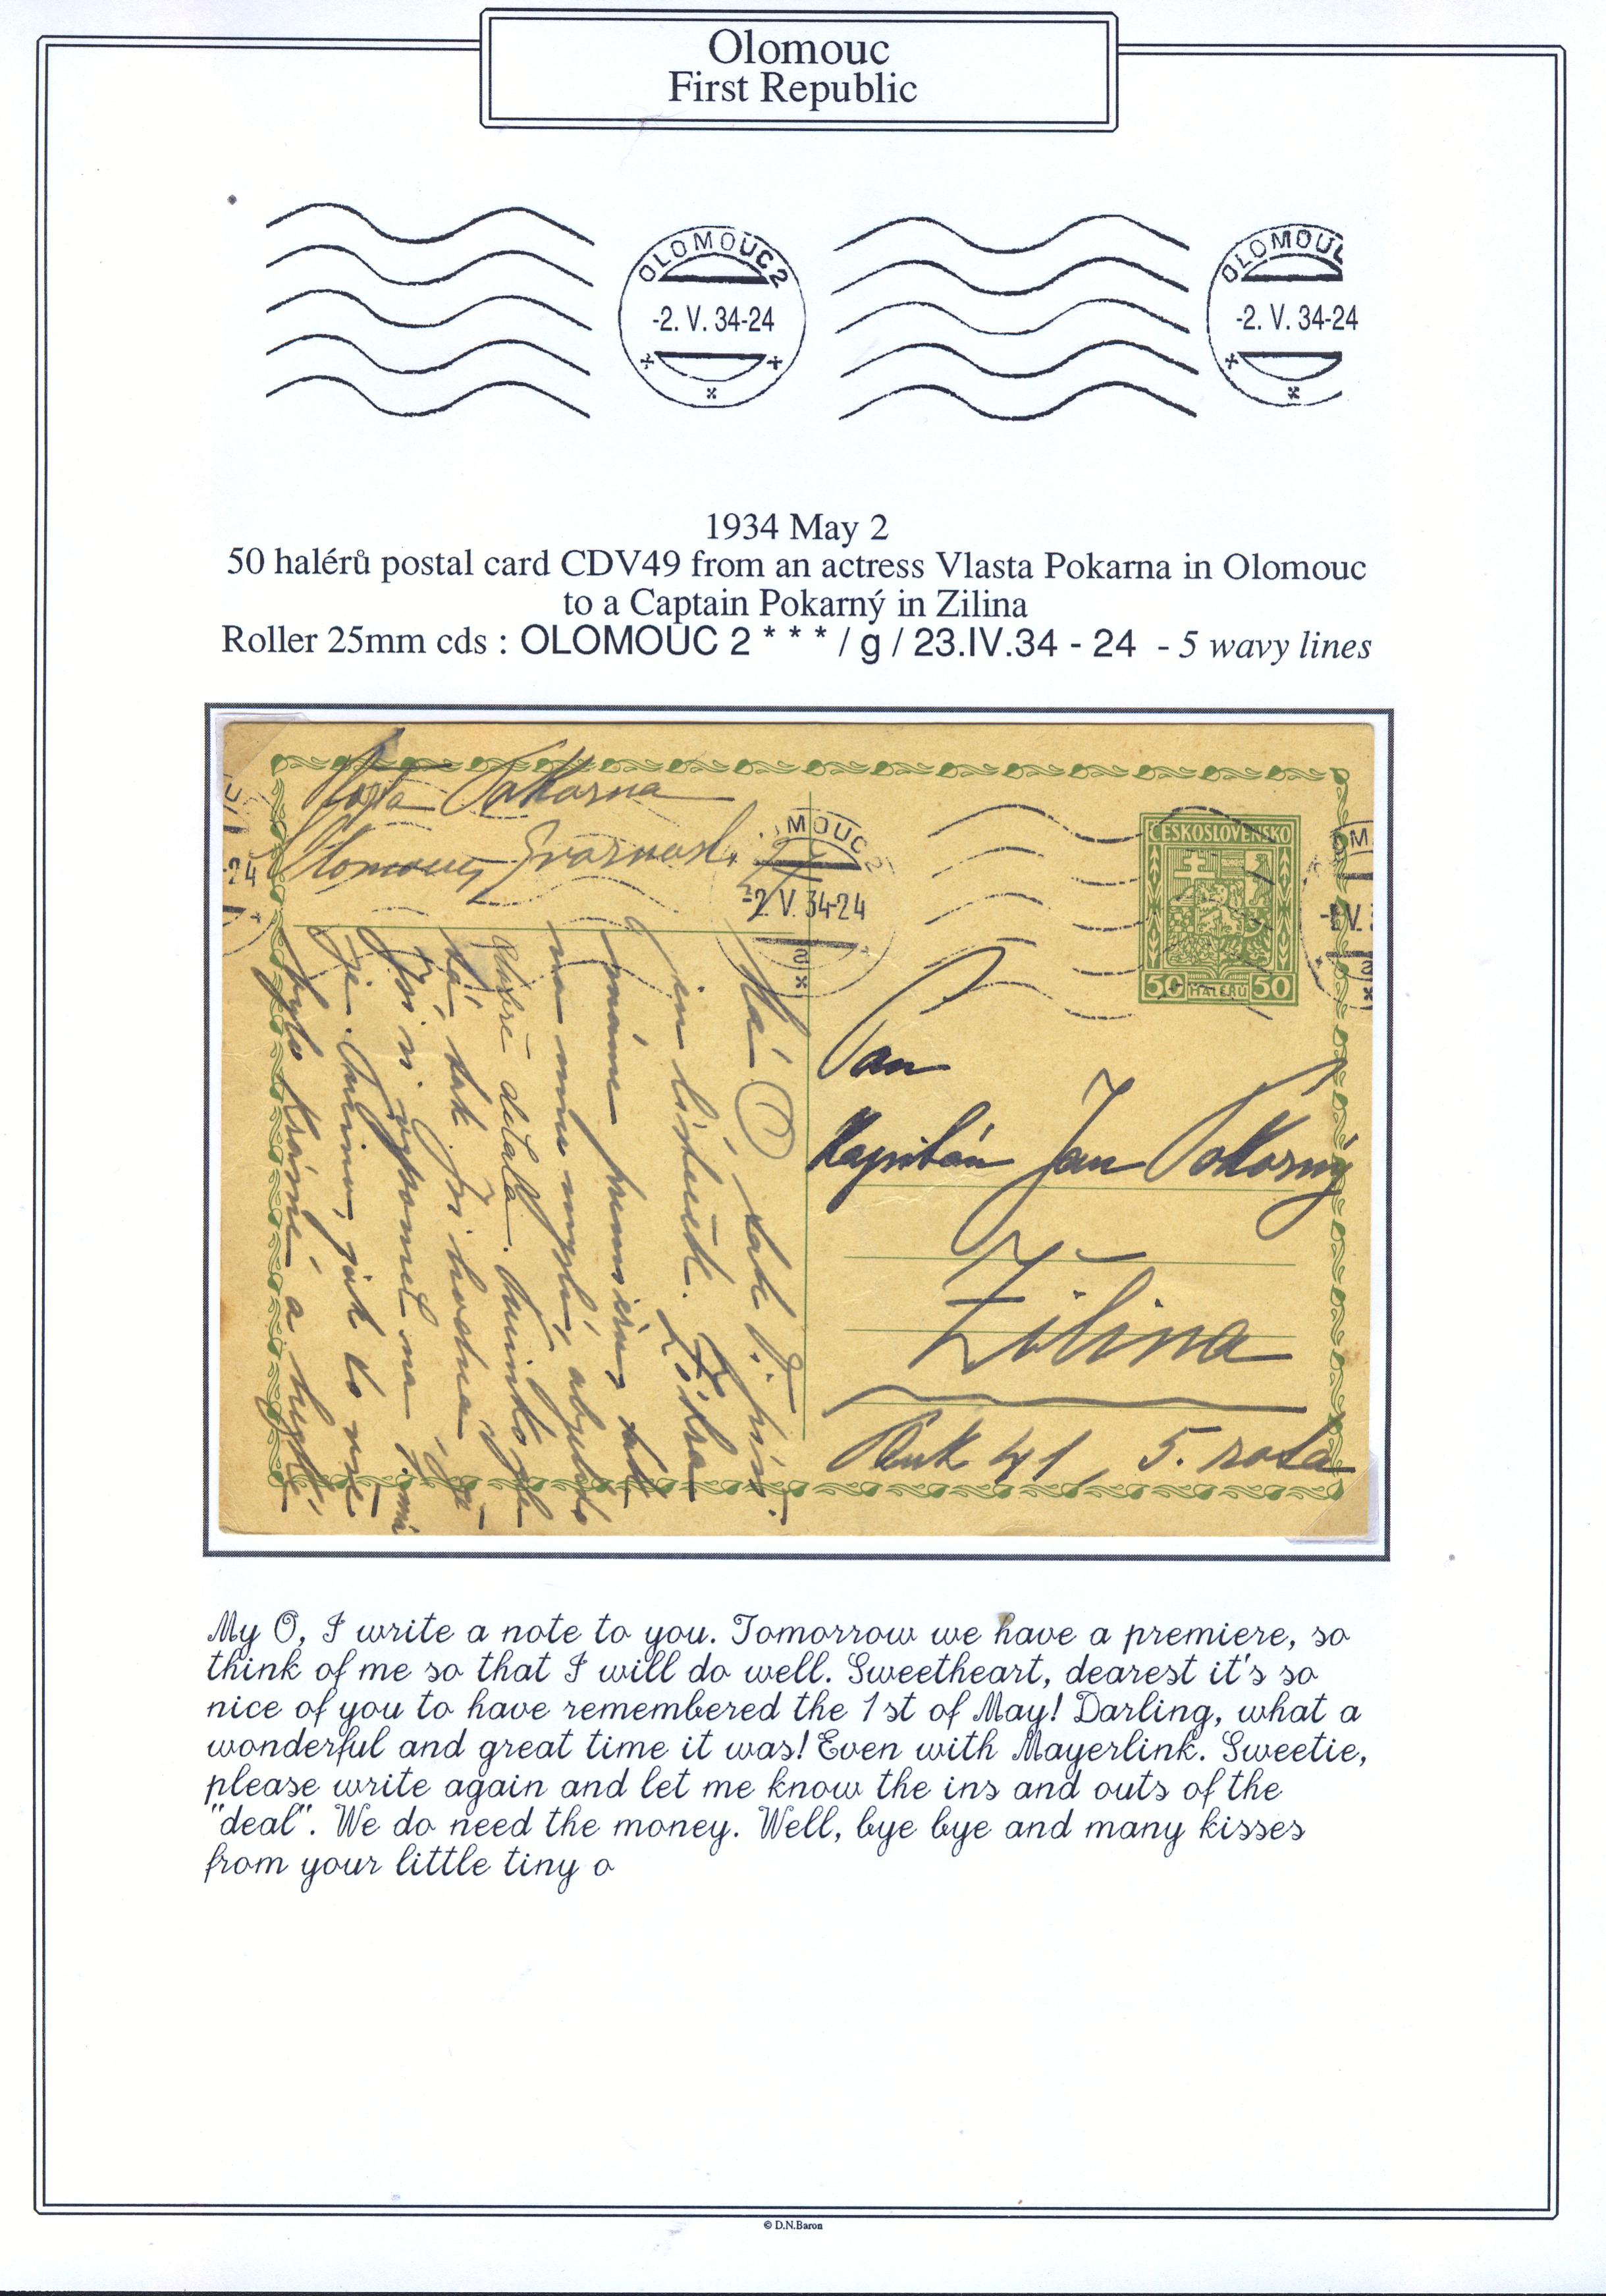 Olomouc
First Republic
OLOMOUC 2
-2. V. 34-24
OLOMOUC
-2. V. 34-24
1934 May 2
50 halérů postal card CDV49 from an actress Vlasta Pokarna in Olomouc
to a Captain Pokarný in Zilina
Roller 25mm cds : OLOMOUC 2 * * * / g / 23.IV.34 - 24 - 5 wavy lines
Pokorna
Olomouc,
OMOUC 2
-2. V. 34-24
-24
ČESKOSLOVENSKO
50 HALÉŘŮ 50
Pan
Kapitán Jan Pokorný
Žilina
Pluk 41, 5. rota
Má
jen lísteček. Zítra
máme premieru, tak
na mnu mysli, abych to
dobře dělala.
tak Jsi hodná
vzpomněl na 1. máj
jak to
bylo krásné a
My O, I write a note to you. Tomorrow we have a premiere, so
think of me so that I will do well. Sweetheart, dearest it's so
nice of you to have remembered the 1st of May! Darling, what a
wonderful and great time it was! Even with Mayerlink. Sweetie,
please write again and let me know the ins and outs of the
"deal". We do need the money. Well, bye bye and many kisses
from your little tiny o
© D.N.Baron